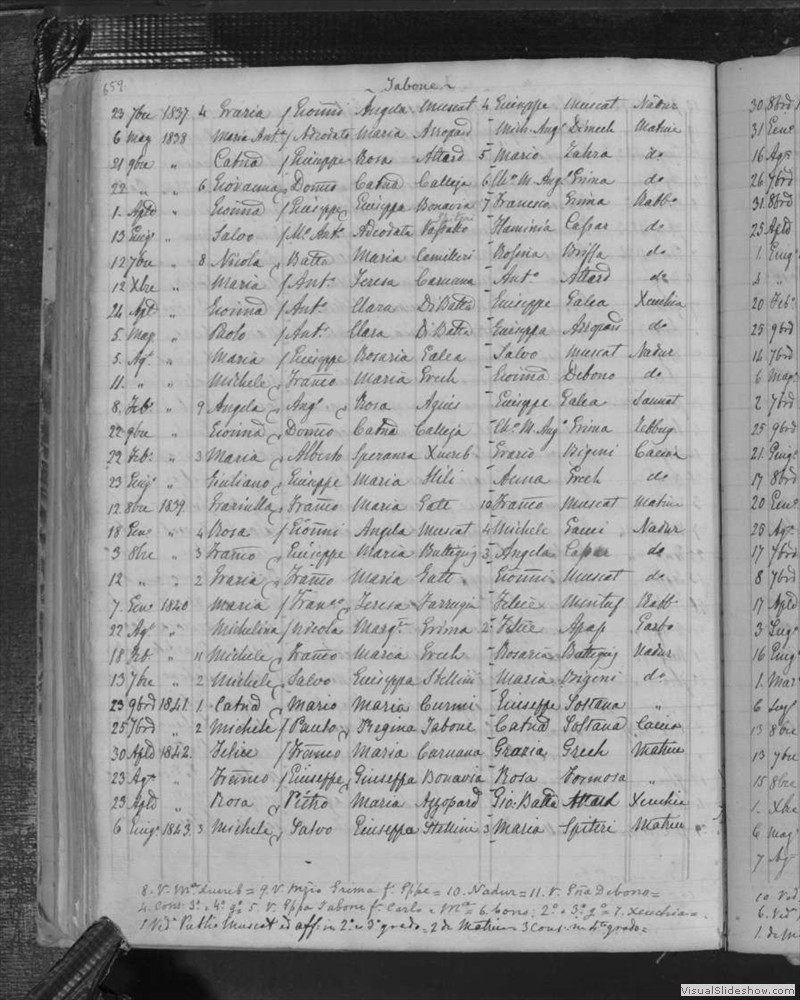 659
Tabone
23 7bre 1837 4 Grazia / Gionni Angela Muscat 4 Giuseppe Muscat Nadur
6 Mag 1838 Maria Ant. / Adeodato Maria Azzopardi Mich. Ang. Dimech Matrice
21 9bre " Catna / Giuseppe Rosa Attard 5 Mario Zahra do
22 " " 6 Giovanna Domco Catna Calleja 6 Ch. M. Ang. Grima do
1. Aple " Gionna / Giuseppe Giuseppa Bonavia 7 Francesco Grima Rabto
13 Giug. " Salvo / M. Ant. Adeodata Vassallo Spiteri Flaminia Cassar do
12 7bre " 8 Nicola Batta Maria Camilleri Rosina Briffa do
12 Xbre " Maria / Ant. Teresa Caruana Ant. Attard do
24 Aple " Gionna / Ant. Clara DiBatta Giuseppe Galea Xeuchia
5. Mag " Paolo / Ant. Clara DiBatta Giuseppa Azzopardi do
5. Ag. " Maria / Giuseppe Rosaria Galea Salvo Muscat Nadur
11. " " Michele Franco Maria Grech Gionna Debono do
8. Feb. " 9 Angela Ang. Rosa Agius Giuseppe Galea Sannat
22 9bre " Gionna Domco Catna Calleja Ch. M. Ang. Grima Zebbug
22 Feb. " 3 Maria Alberto Speranza Xuereb Grazio Bigeni Caccia
23 Giug. " Giuliano Giuseppe Maria Stili Anna Grech do
12 8bre 1839. Graziulla Franco Maria Gatt 10 Franco Muscat Matrice
18 Genn. " 4 Rosa / Gionni Angela Muscat 4 Michele Gauci Nadur
3 8bre " 3 Franco Giuseppe Maria Buttigieg 3 Angela do
12 " " 2 Grazia Franco Maria Gatt Gionni Muscat do
7. Genn. 1840 Maria / Franco Teresa Farrugia Felice Mintuf Rabb
22 Ag. " Michelina Nicola Marg. Grima 2 Felice Apap Garbo
18 Feb. " 11 Michele Franco Maria Grech Rosaria Buttigieg Nadur
13 7bre " 2 Michele Salvo Giuseppa Stellini Maria Bigeni do
23 9brd 1841. 1 Catna Mario Maria Curmi Giuseppe Soltana "
25 7brd " 2 Michele / Paulo Regina Tabone Catna Soltana Caccia
30 Apld 1842. Felice / Franco Maria Caruana Grazia Grech Matrice
23 Ag. " Franco / Giuseppe Giuseppa Bonavia Rosa Formosa "
23 Apld " Rosa Pietro Maria Azzopard Gio: Batta Attard Xeuchia
6 Giug. 1843. 3 Michele Salvo Giuseppa Stellini 3 Maria Spiteri Matrice
8. V. Ma Xuereb = 9. V. Grima f. Gppe = 10. Nadur = 11. V. Gna Debono =
4. Cons. 3o e 4o go 5. V. Gppa Tabone f. Carlo e Ma = 6. Cons. 2o e 3o go = 7. Xeuchia =
1 Vd. Publio Muscat ed aff. in 2o e 3o grado = 2 di Matrice = 3 Cons. in 4o grado =
30 8brd
31 Genn.
16 Ag.
26 7brd
31 8brd
25 Apld
1. Giug.
20 Feb.
25 9brd
14 7brd
6 Mag.
2 7brd
25 9brd
21 Giug.
17 8brd
20 Genn.
28 Ag.
17 7brd
8 7brd
17 Apld
3 Lug.
16 Giug.
1. Mar
6 Lug.
13 8bre
13 7bre
15 8bre
1. Xbre
6 Mag
7 Ag.
10 Vd.
6. Vd.
1. di M
VisualSlideshow.com